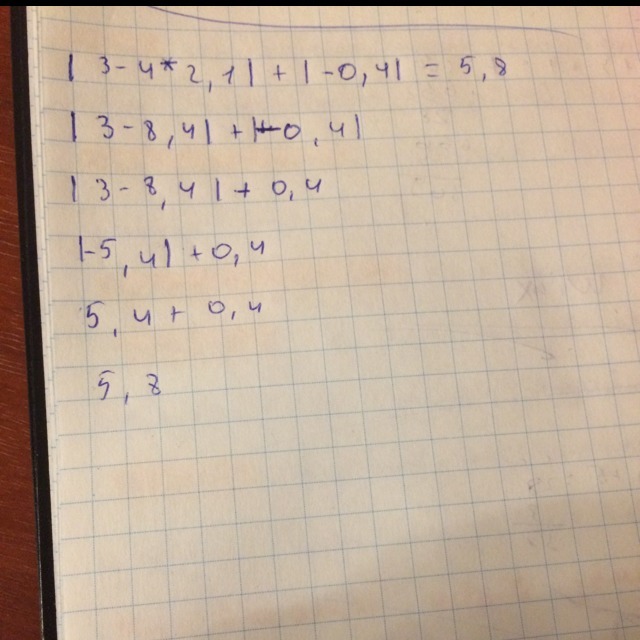 | 3 - 4 * 2,1| + | - 0,4| = 5,8
| 3 - 8,4| + |-0,4|
| 3 - 8,4 | + 0,4
|-5,4| + 0,4
5,4 + 0,4
5,8